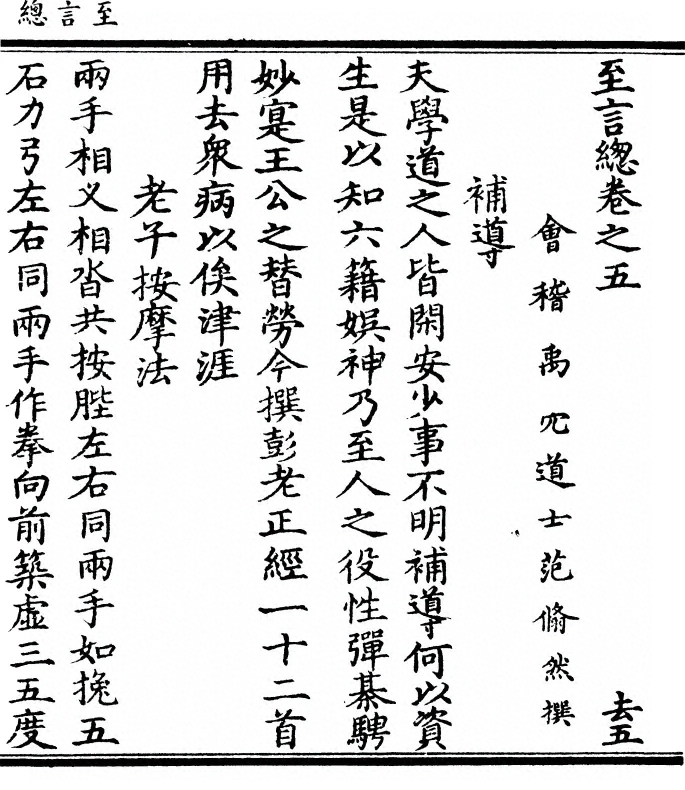 至言總
至言緫卷之五 去五
會稽禹穴道士范翛然撰
補導
夫學道之人皆閑安少事不明補導何以資
生是以知六籍娛神乃至人之役性彈棊騁
妙寔王公之替勞今撰彭老正經一十二首
用去衆病以俟津涯
老子按摩法
兩手相叉相沓共按䏶左右同兩手如挽五
石力弓左右同兩手作拳向前築虛三五度